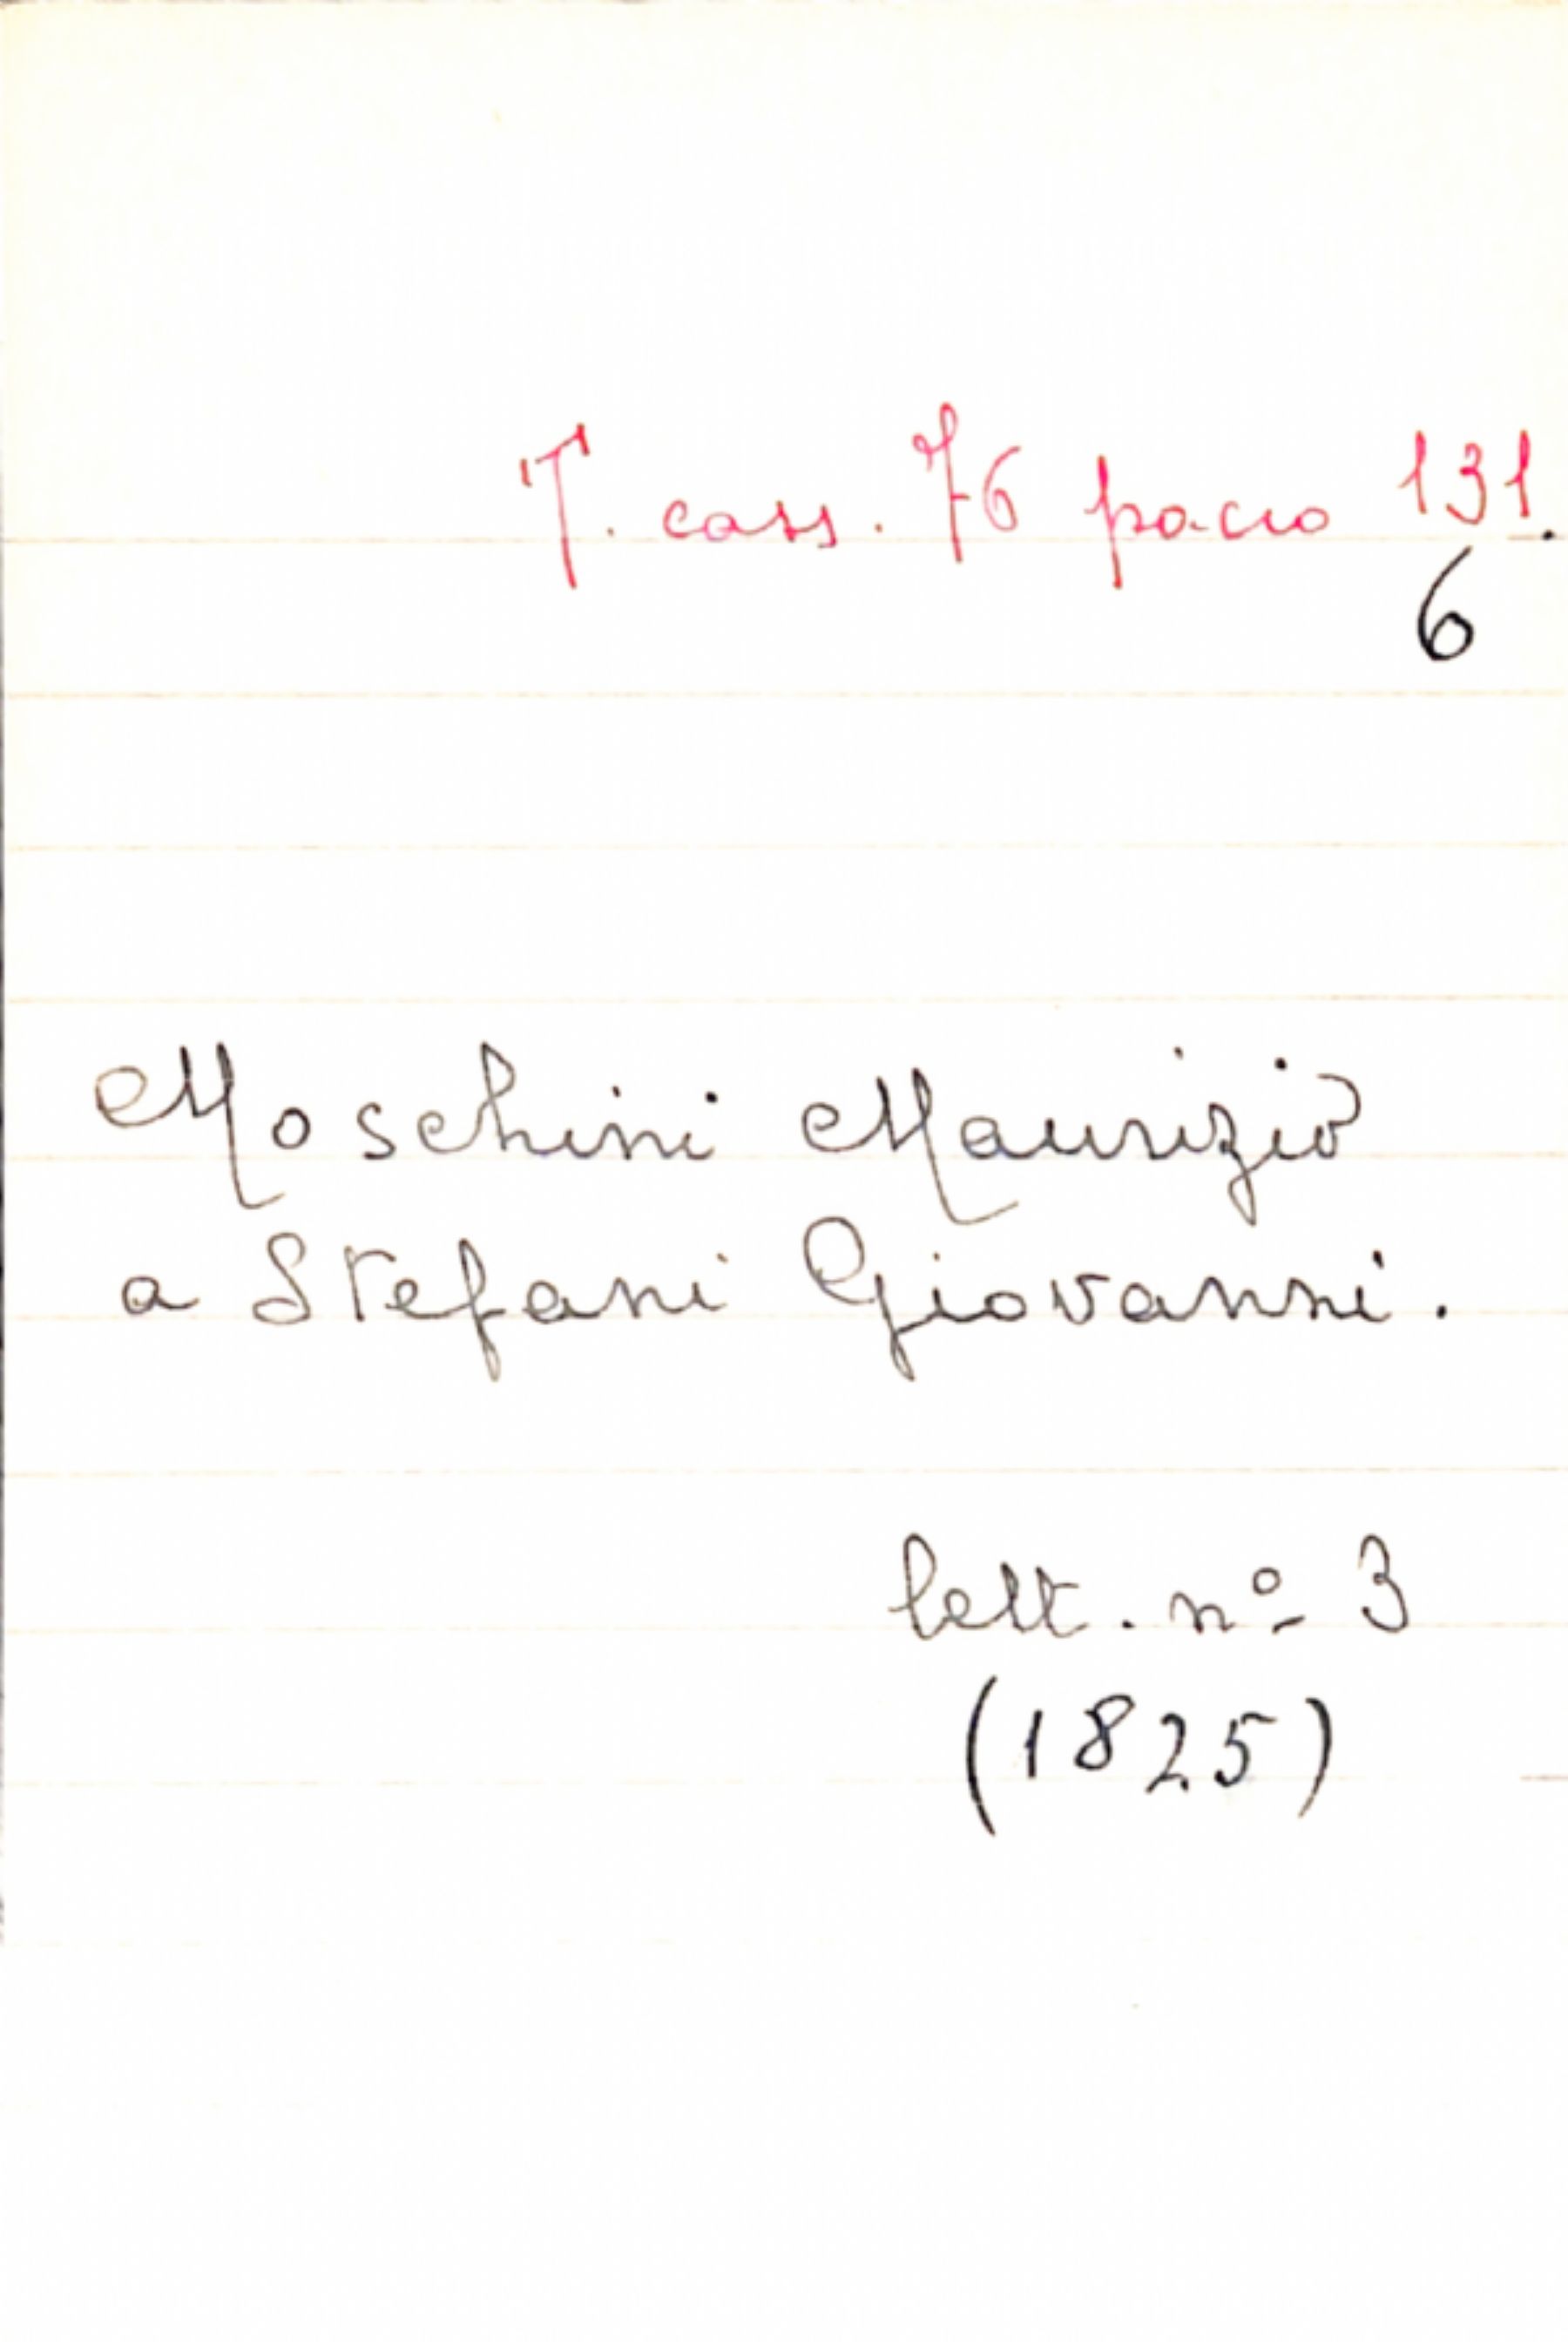 T. cass. 76 pacco 131.
6
Moschini Maurizio
a Stefani Giovanni.
lett. nº 3
(1825)